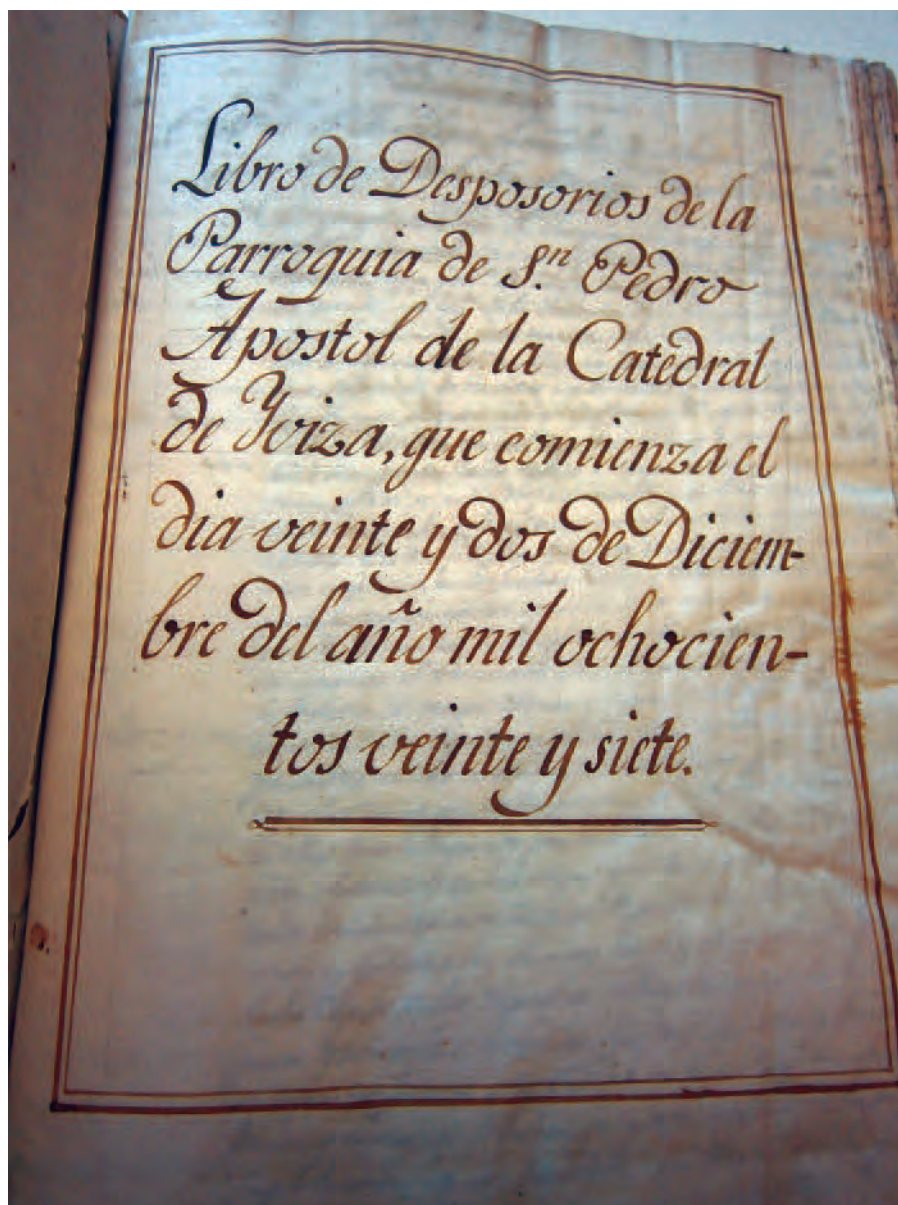 Libro de Desposorios de la
Parroquia de S.ⁿ Pedro
Apostol de la Catedral
de Yviza, que comienza el
dia veinte y dos de Diciem-
bre del año mil ochocien-
tos veinte y siete.